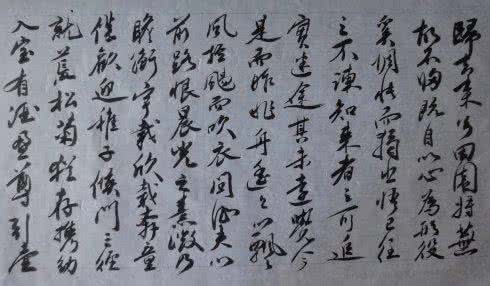 歸去來兮田園將蕪
胡不歸既自以心為形役
奚惆悵而獨悲悟已往
之不諫知來者之可追
實迷途其未遠覺今
是而昨非舟遙遙以
風而吹衣問征夫以
前路恨晨光之熹微乃
瞻衡宇載欣載奔童
僕歡迎稚子候門三徑
就荒松菊猶存攜幼
入室有酒盈尊引壺